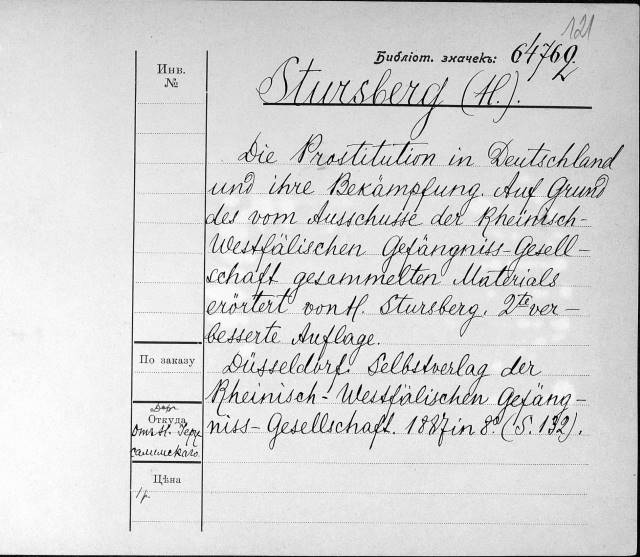 121
Библіот. значекъ: 64760
2
Инв.
№
Stursberg (H.).
Die Prostitution in Deutschland
und ihre Bekämpfung. Auf Grund
des vom Ausschusse der Rheinisch-
Westfälischen Gefängniss-Gesell-
schaft gesammelten Materials
erörtert von H. Stursberg. 2te ver-
besserte Auflage.
Düsseldorf. Selbstverlag der
Rheinisch-Westfälischen Gefäng-
niss-Gesellschaft. 1887 in 8° (S. 132).
По заказу
Откуда
отъ Н. Герус
салимскаго.
Цѣна
1 р.